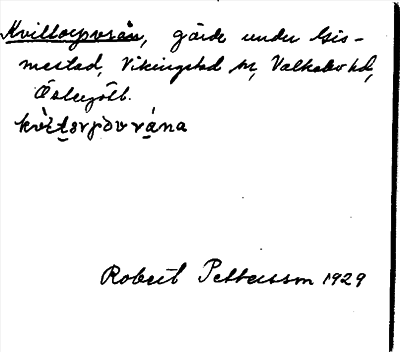 Kvilltorpvrån, gärde under Gis-
mestad, Vikingstad sn, Valkebo hd,
Östergötl.

Robert Pettersson 1929